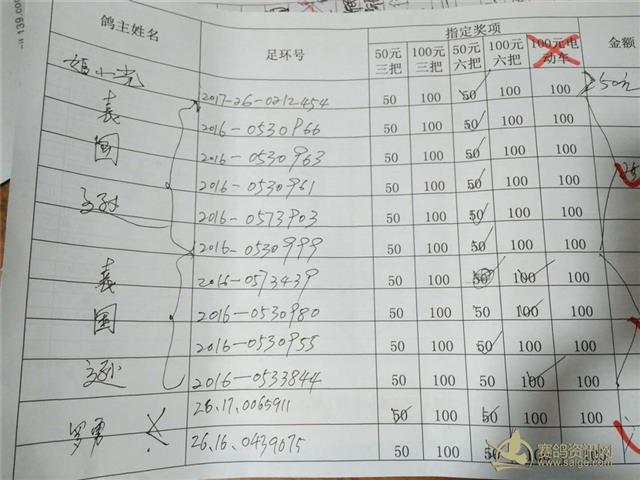 鸽主姓名 足环号 指定奖项 金额
50元三把 100元三把 50元六把 100元六把 100元电动车
2017-26-0212454 50 100 50 100 100 250元
袁 2016-0530966 50 100 50 100 100
国 2016-0530963 50 100 50 100 100
2016-0530961 50 100 50 100 100
2016-0573903 50 100 50 100 100
2016-0530999 50 100 50 100 100
袁 2016-0573439 50 100 50 100 100
国 2016-0530980 50 100 50 100 100
2016-0530955 50 100 50 100 100
2016-0533844 50 100 50 100 100
罗勇 26.17.0065911 50 100 50 100 100
26.16.0439075 50 100 50 100 100
赛鸽资讯网
www.saige.com